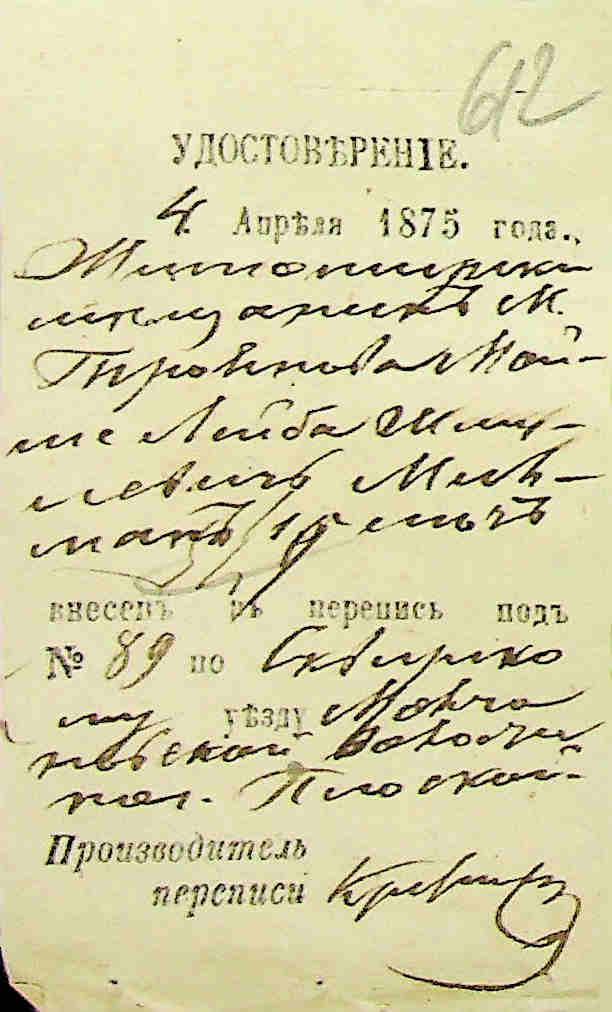 612
УДОСТОВѢРЕНІЕ.
4 Апрѣля 1875 года.,
Житомирски
мещанинъ М.
Мой-
ше Лейба Шму-
левичъ Миль-
манъ 15 лѣтъ
внесенъ въ перепись подъ
№ 89 по Сквирско
му уѣзду Молча
новской волости
пос. Плоской.
Производитель
переписи